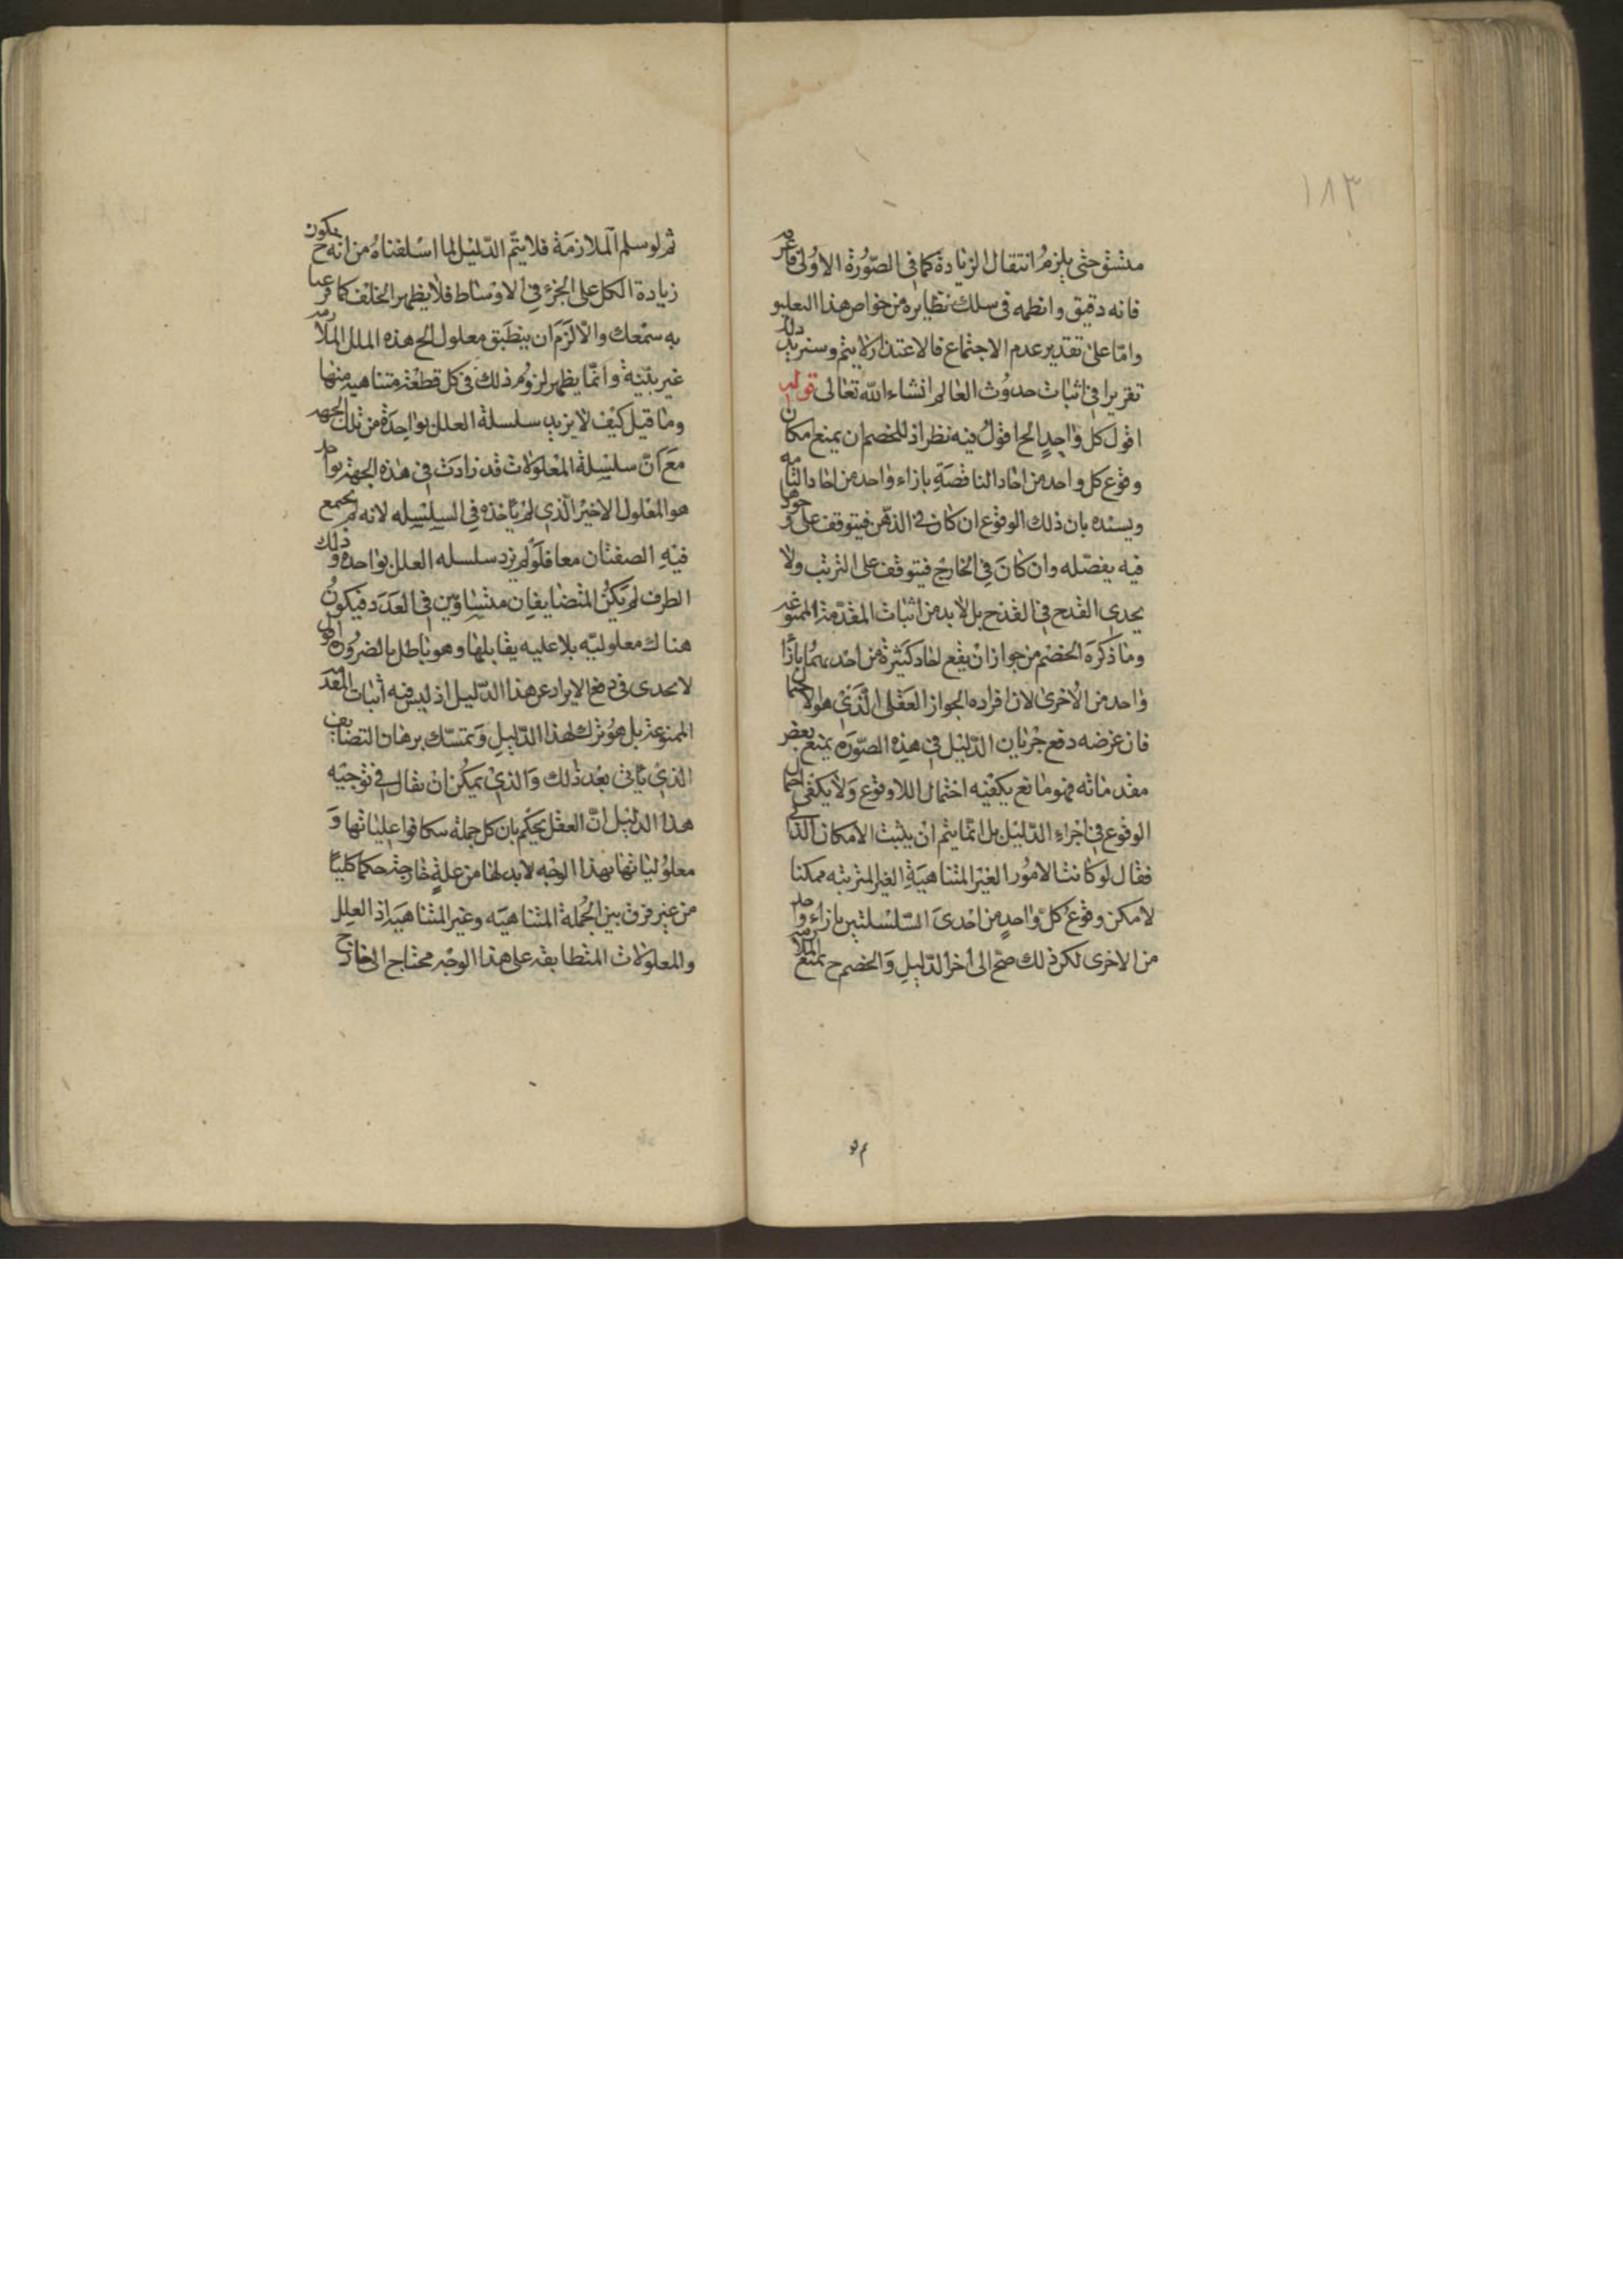 ١٨٣
متسق حتى يلزم انتقال الزيادة كما في الصورة الاولى فاعرفه
فانه دقيق وانظمه في سلك نظايره من خواص هذا التعليق
واما على تقدير عدم الاجتماع فالاعتذار لا يتم وسنزيد ذلك
تقريرا في اثبات حدوث العالم انشاء الله تعالى قوله
اقول كل واحد الخ اقول فيه نظر اذ للخصم ان يمنع امكان
وقوع كل واحد من احاد الناقصة بازاء واحد من احاد التامه
ويسنده بان ذلك الوقوع ان كان في الذهن فيتوقف على وجودها
فيه مفصله وان كان في الخارج فيتوقف على الترتب ولا
يجدى القدح في القدح بل لا بد من اثبات المقدمة الممنوعه
وما ذكره الخصم من جواز ان يقع احاد كثيرة من احديهما بازا
واحد من الاخرى لان افراده الجواز العقلى الذي هو الاحتما
فان غرضه دفع جريان الدليل في هذه الصوره بمنع بعض
مقدماته فهو مانع يكفيه احتمال اللاوقوع ولا يكفى احتمال
الوقوع في اجراء الدليل بل انما يتم ان يثبت الامكان الذاتى
فقال لو كانت الامور الغير المتناهية الغير المترتبه ممكنا
لامكن وقوع كل واحد من احدى السلسلتين بازاء واحد
من الاخرى لكن ذلك صح الى اخر الدليل والخصم ح يمنع الملازمه
ثم لو
ثم لو سلم الملازمة فلا يتم الدليل لما اسلفناه من انه ح يكون
زيادة الكل على الجزء في الاوساط فلا يظهر الخلف كما قرعنا
به سمعك والا لزم ان ينطبق معلول الخ هذه الملل الملازمه
غير بينة وانما يظهر لزوم ذلك في كل قطعة متناهيه منها
وما قيل كيف لا يزيد سلسلة العلل بواحدة من تلك الجهه
مع ان سلسلة المعلولات قد زادت في هذه الجهة بواحد
هو المعلول الاخير الذي لم ياخذه في السلسله لانه لم يجتمع
فيه الصفتان معا فلو لم يزد سلسله العلل بواحده و ذلك
الطرف لم يكن المتضايفان متساويين في العدد فيكون
هناك معلوليه بلا عليه يقابلها وهو باطل بالضروره
لا يجدى في دفع الايراد عن هذا الدليل اذ ليس فيه اثبات المقدمه
الممنوعة بل هو ترك لهذا الدليل وتمسك ببرهان التضايف
الذي ياتى بعد ذلك والذي يمكن ان يقال في توجيه
هذا الدليل ان العقل يحكم بان كل جملة تكافوا علياتها و
معلولياتها بهذا الوجه لا بد لها من علة خارجة حكما كليا
من غير فرق بين الجملة المتناهيه وغير المتناهية اذ العلل
والمعلولات المتطابقه على هذا الوجه محتاج الى خارج